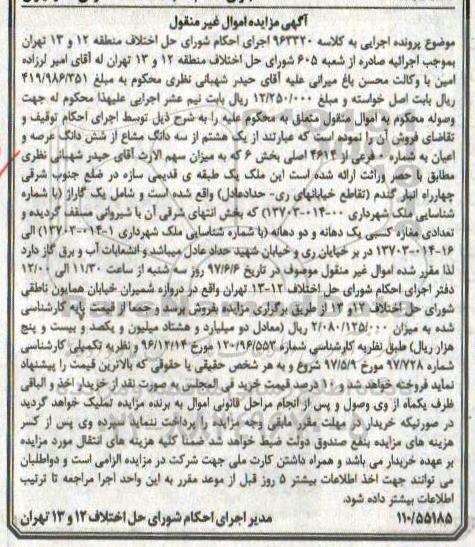 آگهی مزایده اموال غیر منقول
موضوع پرونده اجرایی به کلاسه ۹۶۳۳۲۰ اجرای احکام شورای حل اختلاف منطقه ۱۲ و ۱۳ تهران
بموجب اجرائیه صادره از شعبه ۶۰۵ شورای حل اختلاف منطقه ۱۲ و ۱۳ تهران له آقای امیر لرزاده
امین با وکالت محسن باغ میرانی علیه آقای حیدر شهبائی نظری محکوم به مبلغ ۴۱۹/۹۸۶/۳۵۱
ریال بابت اصل خواسته و مبلغ ۱۲/۲۵۰/۰۰۰ ریال بابت نیم عشر اجرایی علیهذا محکوم له جهت
وصوله محکوم به اموال منقول متعلق به محکوم علیه را به شرح ذیل توسط اجرای احکام توقیف و
تقاضای فروش آن را نموده است که عبارتند از یک هشتم از سه دانگ مشاع از شش دانگ عرصه و
اعیان به شماره ۰ فرعی از ۴۶۱۳ اصلی بخش ۶ که به میزان سهم الارث آقای حیدر شهبائی نظری
مطابق با حصر وراثت ارائه شده است این ملک یک طبقه ی قدیمی سازه در ضلع جنوب شرقی
چهارراه انبار گندم (تقاطع خیابانهای ری- حدادعادل) واقع شده است و شامل یک گاراژ (با شماره
شناسایی ملک شهرداری ۰۰-۰۱۴-۱۳۷۰۳) که بخش انتهای شرقی آن با شیروانی مسقف گردیده و
تعدادی مغازه کسبی یک دهانه و دو دهانه (با شماره شناسایی ملک شهرداری ۱-۰۱۴-۱۳۷۰۳) الی
۱۶-۰۱۴-۱۳۷۰۳ در بر خیابان ری و خیابان شهید حداد عادل میباشد و انشعابات آب و برق گاز دارد
لذا مقرر شده اموال غیر منقول موصوف در تاریخ ۹۷/۶/۶ روز سه شنبه از ساعت ۱۱/۳۰ الی ۱۲/۰۰
دفتر اجرای احکام شورای حل اختلاف ۱۲-۱۳ تهران واقع در دروازه شمیران خیابان همایون ناطقی
شورای حل اختلاف ۱۲ و ۱۳ از طریق برگزاری مزایده بفروش برسد و جمعا از قیمت پایه کارشناسی
شده به میزان ۲/۰۸۰/۱۲۵/۰۰۰ ریال (معادل دو میلیارد و هشتاد میلیون و یکصد و بیست و پنج
هزار ریال) طبق نظریه کارشناسی شماره ۱۲۰/۹۶/۵۵۳ مورخ ۹۶/۱۲/۱۴ و نظریه تکمیلی کارشناسی
شماره ۹۷/۷۲۸ مورخ ۹۷/۵/۹ شروع و به هر شخص حقیقی یا حقوقی که بالاترین قیمت را پیشنهاد
نماید فروخته خواهد شد و ۱۰ درصد قیمت خرید فی المجلس به صورت نقد از خریدار اخذ و الباقی
ظرف یکماه از وی وصول و پس از انجام مراحل قانونی اموال به برنده مزایده تملیک خواهد گردید
در صورتیکه خریدار در مهلت مقرر مابقی وجه مزایده را پرداخت ننماید سپرده وی پس از کسر
هزینه های مزایده بنفع صندوق دولت ضبط خواهد شد ضمنا کلیه هزینه های انتقال مورد مزایده
بر عهده خریدار می باشد و همراه داشتن کارت ملی جهت شرکت در مزایده الزامی است و دواطلبان
می توانند جهت اخذ اطلاعات بیشتر ۵ روز قبل از موعد مقرر به این واحد اجرا مراجعه تا ترتیب
اطلاعات بیشتر داده شود.
۱۱۰/۵۵۱۸۵ مدیر اجرای احکام شورای حل اختلاف ۱۲ و ۱۳ تهران